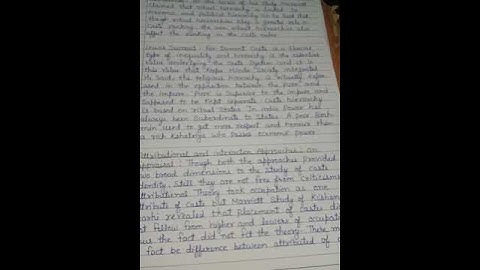 claimed that ritual hierarchy is linked to
economic and political hierarchy or to land but
though ritual hierarchies play a greater role in
caste ranking, the non ritual hierarchies also
affect the ranking in the caste order
Louis Dumont : For Dumont Caste is a special
type of inequality and hierarchy is the essential
value underlying the caste system and it is
this value that keeps Hindu Society integrated
He said, the religious hierarchy is ritually expre
ssed in the opposition between the pure and
the impure. Pure is Superior to the impure and
supposed to be Kept seperate Caste hierarchy
is based on ritual states. In India Power has
always been Subordinate to States. A poor Brah-
min used to get more respect and honour than
a rich Kshatriya who posses economic power
Attributional and interaction Approaches : an
appraisal : Though both the approaches provided
two broad dimensions to the study of caste
identity. Still they are not free from Criticisms
Attributional Theory took occupation as one
attribute of caste but Marriott Study of Kishan
Garhi revealed that placement of castes did
not follow from higher and lowers of occupat
thus the fact did not fit the theory. There m
fact be difference between attributed of